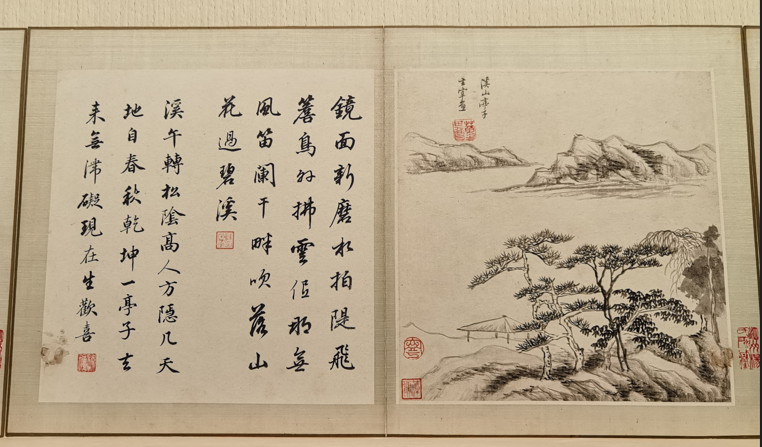 溪山亭子
玄宰畫
鏡面新磨水拍隄飛
簷鳥外拂雲低那無
風笛闌干畔吹落山
花過碧溪
溪午轉松陰高人方隱几天
地自春秋乾坤一亭子去
来無滯礙現在生歡喜